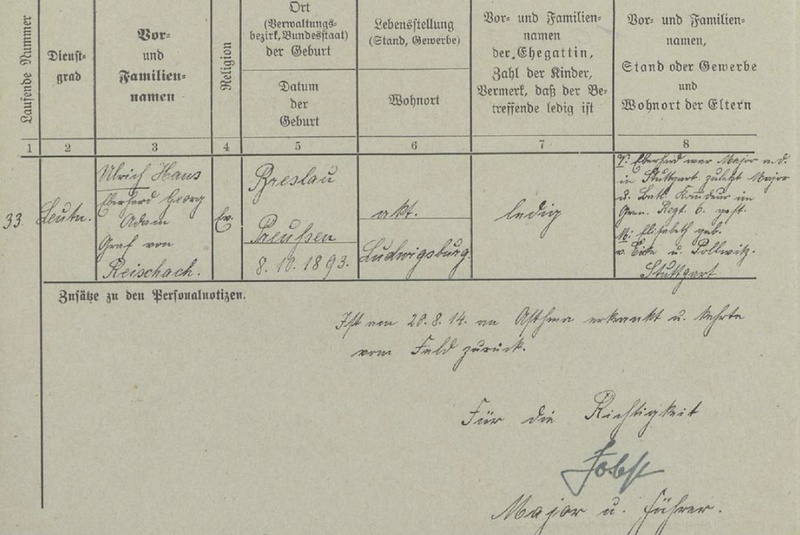 Laufende Nummer
Dienst-
grad
Vor-
und
Familien-
namen
Religion
Ort
(Verwaltungs-
bezirk, Bundesstaat)
der Geburt
Datum
der
Geburt
Lebensstellung
(Stand, Gewerbe)
Wohnort
Vor- und Familien-
namen
der Ehegattin,
Zahl der Kinder,
Vermerk, daß der Be-
treffende ledig ist
Vor- und Familien-
namen,
Stand oder Gewerbe
und
Wohnort der Eltern
1 2 3 4 5 6 7 8
33.
Leutn.
Ulrich Hans
Eberhard Georg
Adam
Graf von
Reischach.
Ev.
Breslau
Preußen
8.10.1893.
akt.
Ludwigsburg.
ledig
V: Eberhard war Major a. D.
in Stuttgart zuletzt Major
u. Batl. Kmdeur im
Gren. Regt. 6. gest.
M: Elisabeth geb.
v. u. Pollwitz.
Stuttgart
Zusätze zu den Personalnotizen.
Ist am 20.8.14. an Asthma erkrankt u. kehrte
vom Feld zurück.
Für die Richtigkeit
Jobst
Major u. Führer.